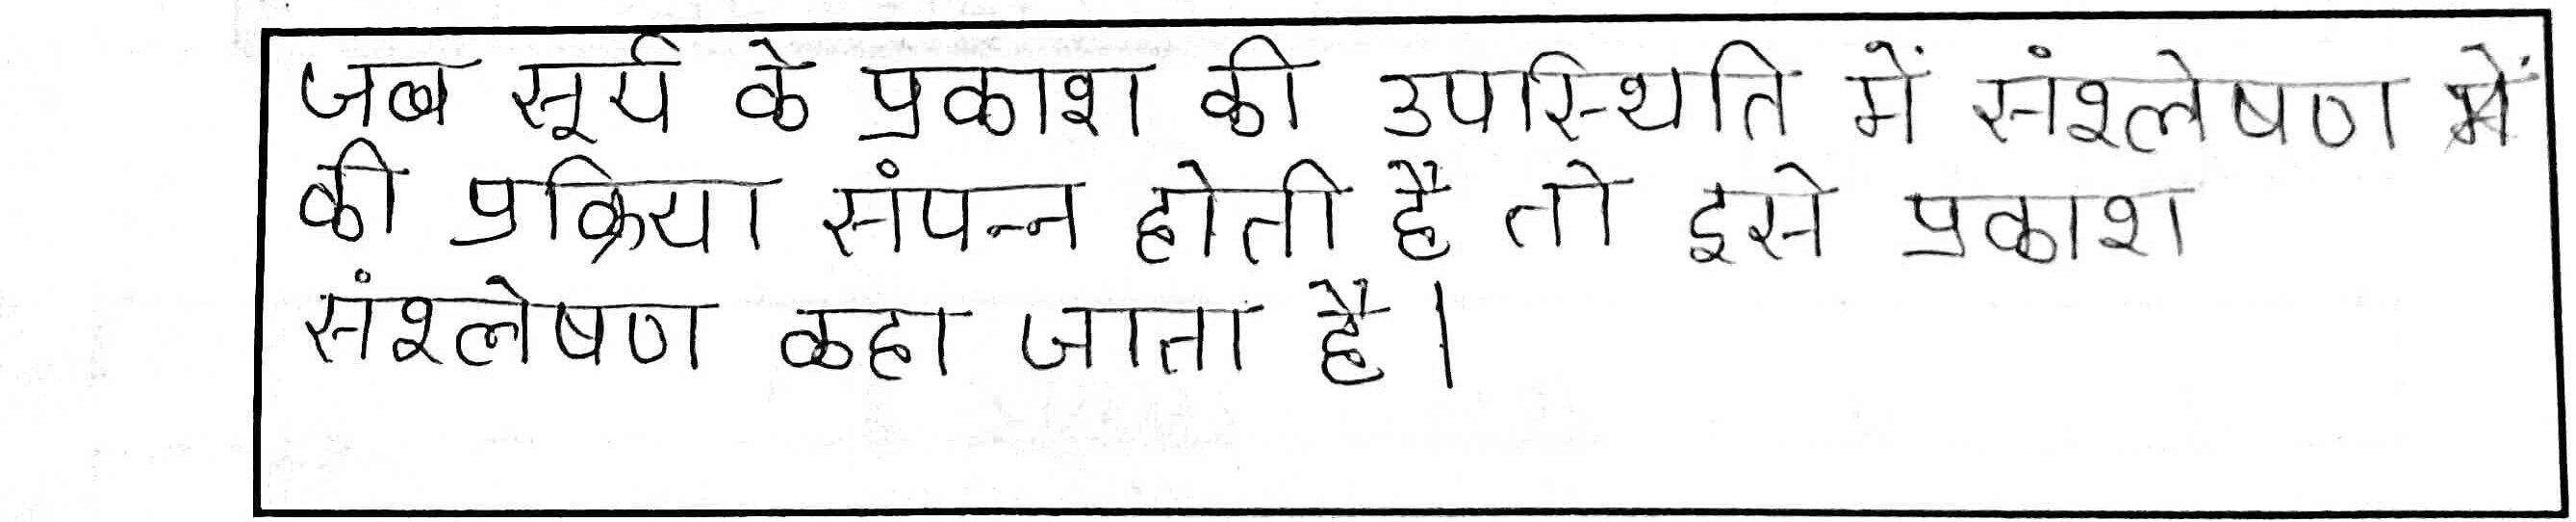 जब सूर्य के प्रकाश की उपस्थिति में संश्लेषण में
की प्रक्रिया संपन्न होती है तो इसे प्रकाश
संश्लेषण कहा जाता है।